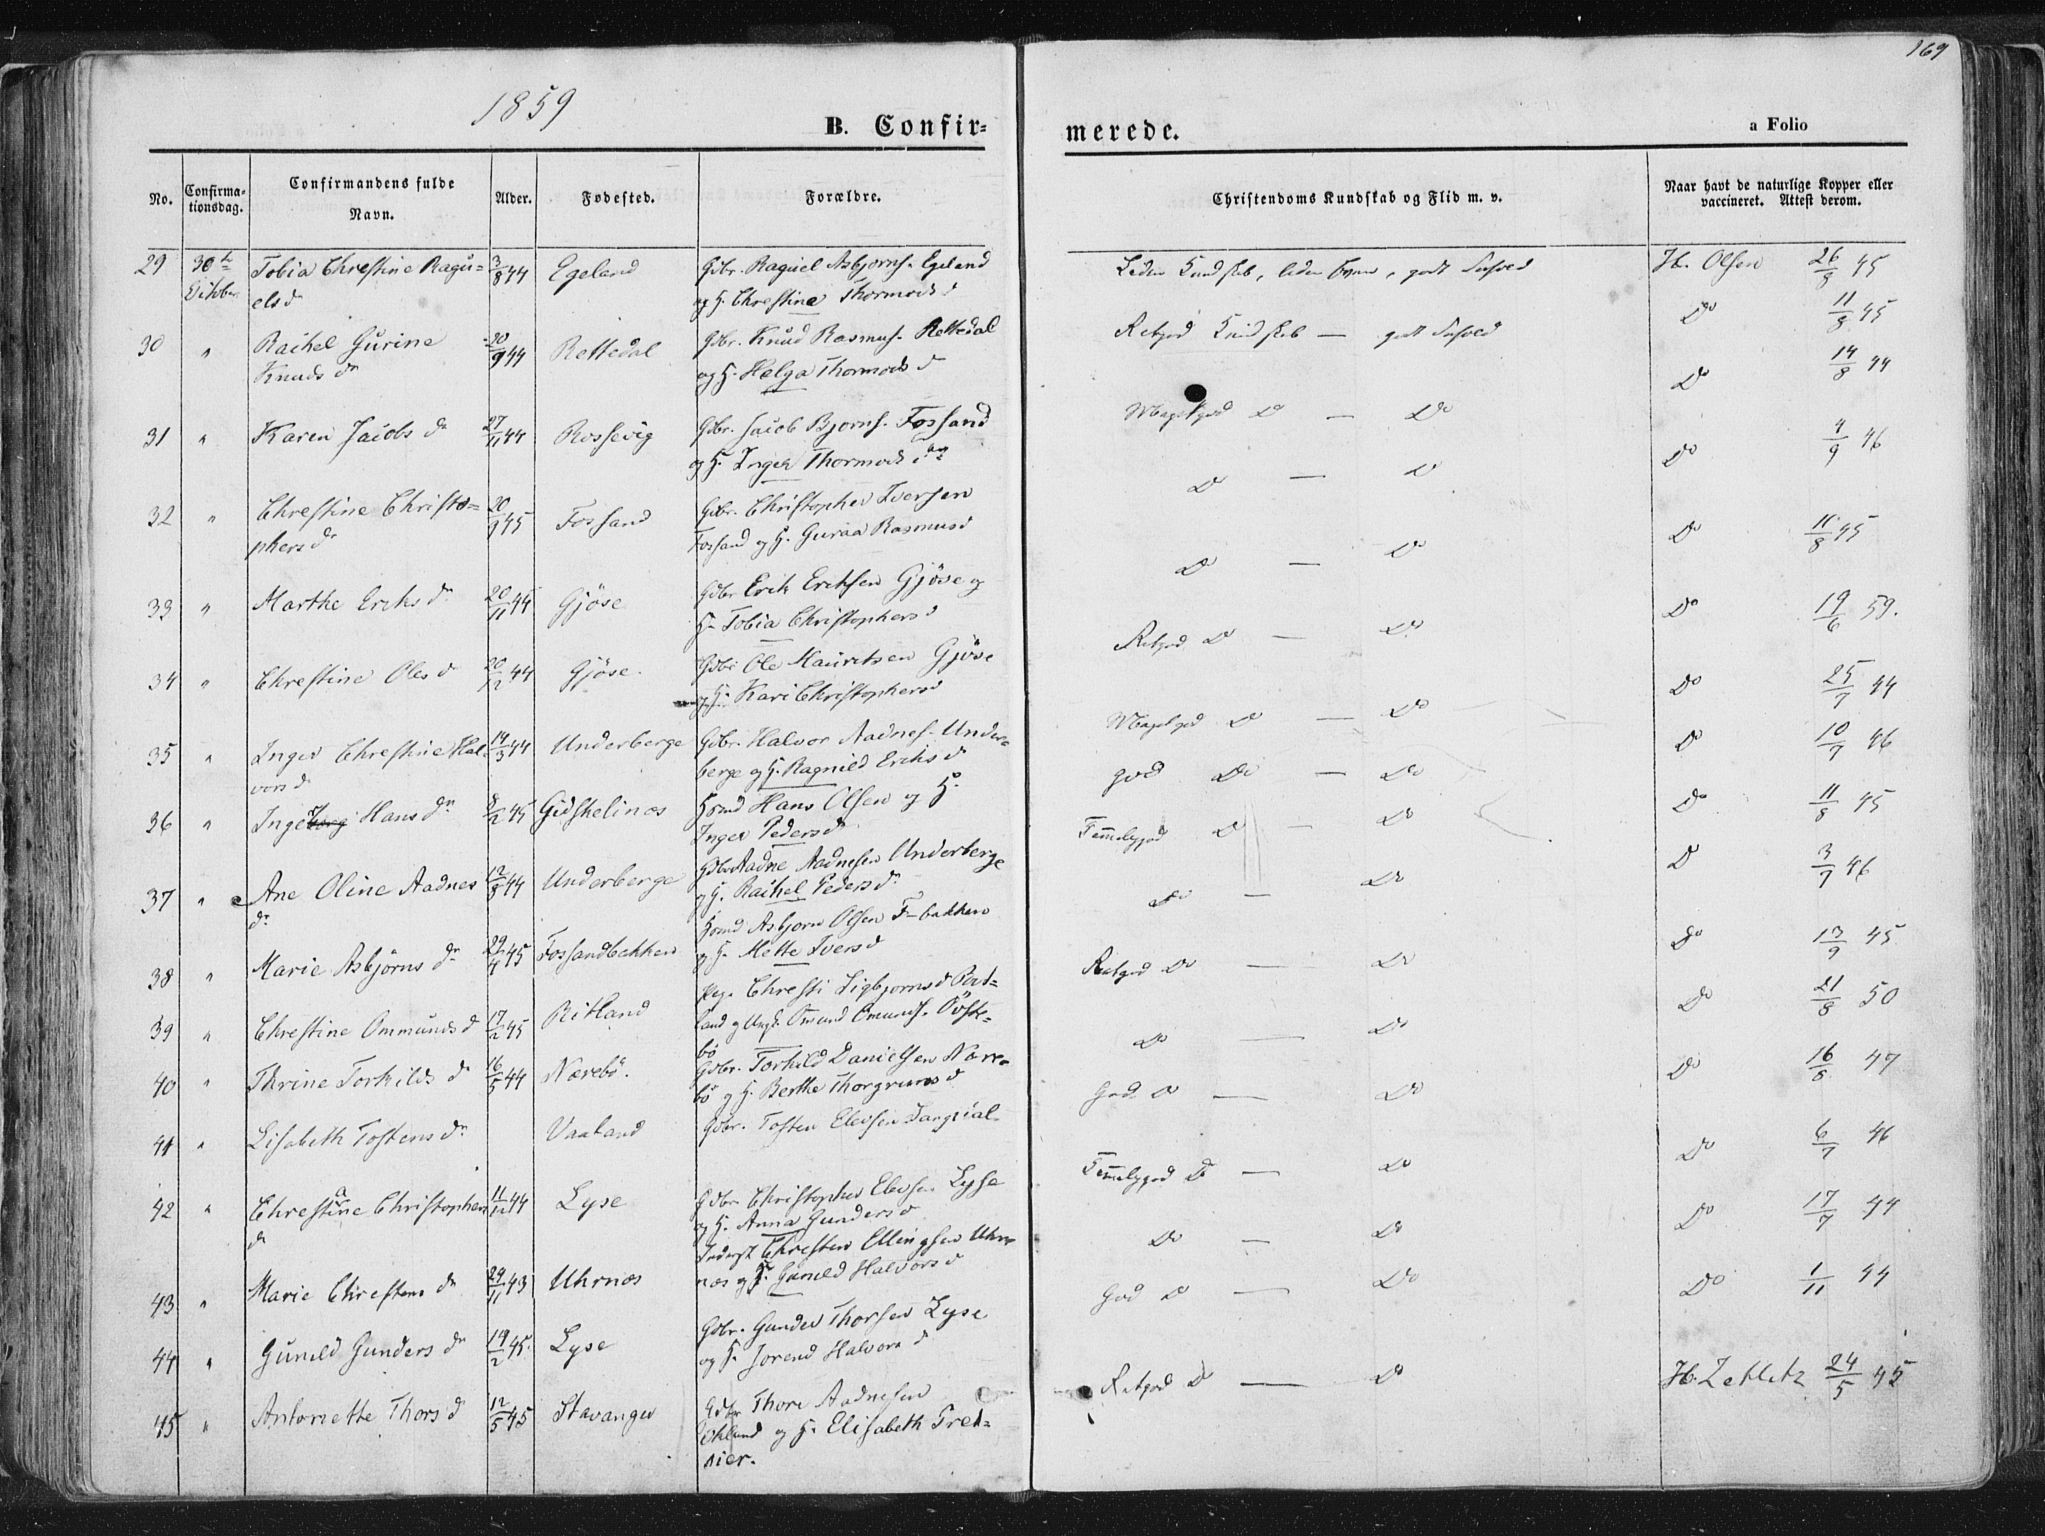 169
1859
B. Confirmerede.
a Folio
No.
Confirmationsdag.
Confirmandens fulde Navn.
Alder.
Fødested.
Forældre.
Christendoms Kundskab og Flid m. v.
Naar havt de naturlige Kopper eller vaccineret. Attest derom.
29 30te Octobr Tobia Chrestine Raguelsdr 3/8 44 Egeland Gdbr. Raguel Asbjorns. Egeland
og H. Chrestine Thormodsd
Liden Kundskab, liden Evne, godt Forhold
H. Olsen 26/8 45
30 " Rachel Gurine Knudsdr 20/9 44 Rettedal Gdbr. Knud Rasmus. Rettedal
og H. Helga Thormodsd
Retgod Kundskab — godt Forhold
Do 11/8 45
31 " Karen Jacobsdr 27/11 44 Rossevig Gdbr. Jacob Bjorns. Fossand
og H. Inger Thormodsd
Megetgod Do — Do
Do 14/8 44
32 " Chrestine Christophersdr 20/9 45 Fossand Gdbr. Christopher Iversen
Fossand og H. Guraa Rasmusd
Do — Do
Do 4/9 46
33 " Marthe Eriksdr 20/11 44 Gjöse Gdbr Erik Eriksen Gjöse og
H. Tobia Christophersd
Do — Do
Do 11/8 45
34 " Chrestine Olesd 20/12 44 Gjöse. Gdbr Ole Mauritsen Gjöse
og H. Kari Christophersd
Retgod Do — Do
Do 19/6 59.
35 " Inger Chrestine Halvorsd 14/3 44 Underberge Gdbr. Halvor Aadnes. Underberge og H. Ragnild Eriksd
Megetgod Do — Do
Do 25/7 44
36 " Inger Hansdr 8/2 45 Gidskelinæs Hmd Hans Olsen og H.
Inger Pedersd
God Do — Do
Do 10/7 46
37 " Ane Oline Aadnesdr 12/8 44 Underberge Gdbr Aadne Aadnesen Underberge
og H. Rachel Pedersdr
Temmeliggod Do — Do
Do 11/8 45
38 " Marie Asbjörnsdr 29/4 45 Fossandbakken Hmd Asbjorn Olsen F-bakken
og H. Mette Iversd
Do — Do
Do 3/7 46
39 " Chrestine Ommundsd 17/2 45 Ritland Pig. Chresti Sigbjornsd
Retgod Do — Do
Do 13/9 45
40 " Thrine Torkildsd 16/5 44 Nærebö. Gdbr. Torkild Danielsen Nærebö og H. Berthe Thorgrimsd
Do — Do
Do 21/8 50
41 " Lisabeth Tostensdr Vaaland Gdbr. Tosten Elevsen
God Do — Do
Do 16/8 47
42 " Chrestine Christophersdr 11/12 44 Lyse Gdbr Christopher Elevsen Lyse
og H. Anna Gundersd
Temmeliggod Do — Do
Do 6/7 46
43 " Marie Chrestensdr 24/11 43 Uhrnæs Inderst Chresten Ellingsen Uhrnæs og H. Gunild Halvorsd
Do — Do
Do 17/7 44
44 " Gunild Gundersdr 19/2 45. Lyse Gdbr. Gunder Thorsen Lyse
og H. Jorend Halvorsd
God Do — Do
Do 1/11 44
45 " Antonette Thorsd 12/5 45 Stavanger Gdbr Thore Aadnesen
og H. Elisabeth
Retgod Do — Do
H. Zetlitz 24/5 45